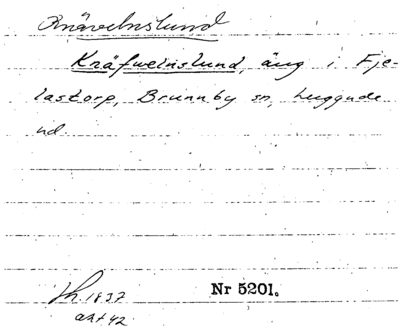 Knävelnslund
Kräfwelnslund, äng i Fje-
lastorp, Brunnby sn, Luggude
hd
Lh. 1837
akt 42
Nr 5201.